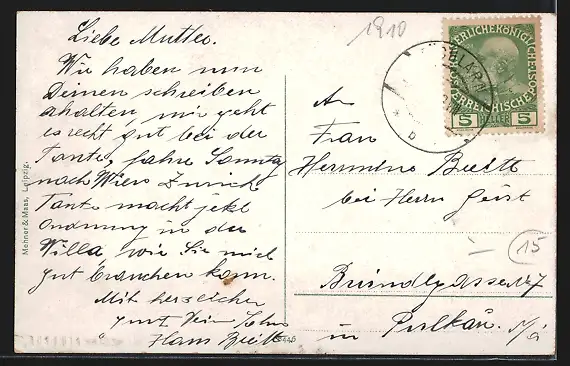 1910
Liebe Mutter.
Wir haben nun
Deinen schreiben
erhalten, mir geht
es recht gut bei der
Tante, fahre Sonntag
nach Wien zurück
Tante macht jetzt
Ordnung in der
Villa, wie Sie mich
gut brauchen kann.
Mit herzlichen
Hans
An
Frau
Hermine
bei Herrn Geist
15
7
in Pulkau. N/Ö
KAISERLICHEKÖNIGLICHE
ÖSTERREICHISCHE
5 HELLER 5
Mehner & Maas, Leipzig.